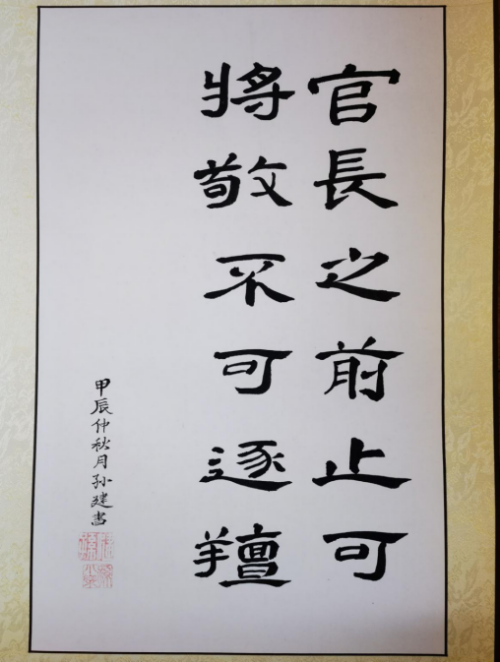 官長之前止可
將敬不可逐羶
甲辰仲秋月孙建书